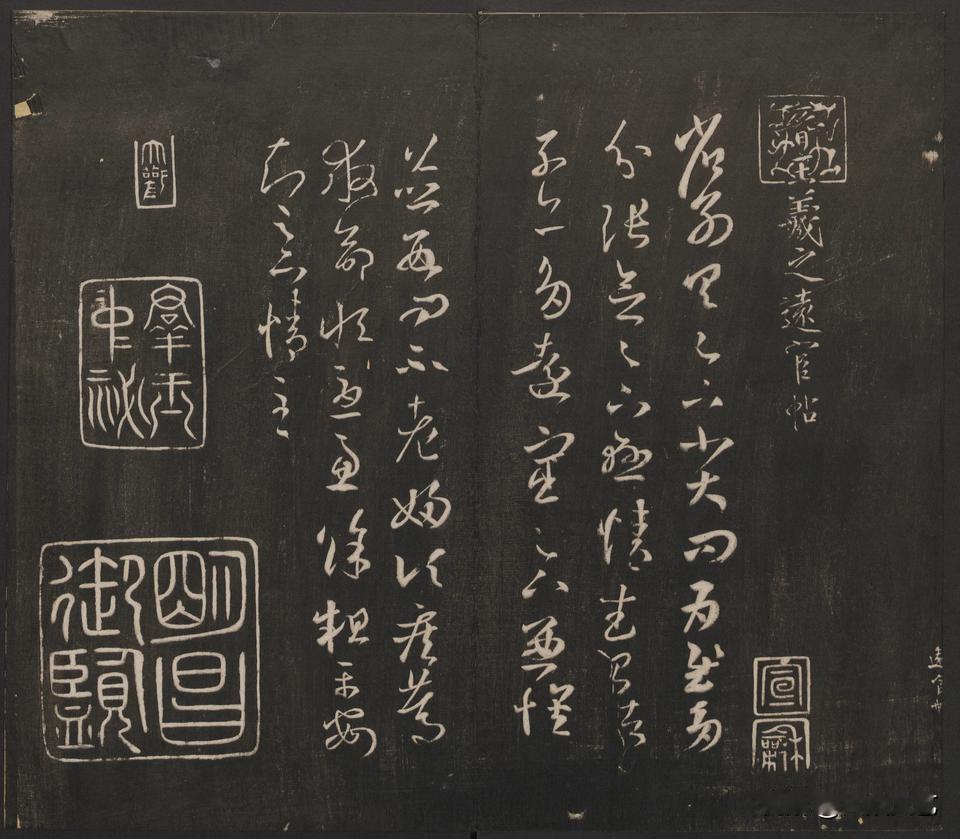 晉王羲之遠宦帖
宣龢
省別具足下小大問為慰多
分張念足下懸情武昌諸
子亦多遠宦足下兼懷
並數問不老婦頃疾篤
救命恒憂慮餘粗平安
知足下情至
大觀
羣玉中祕
明昌御覽